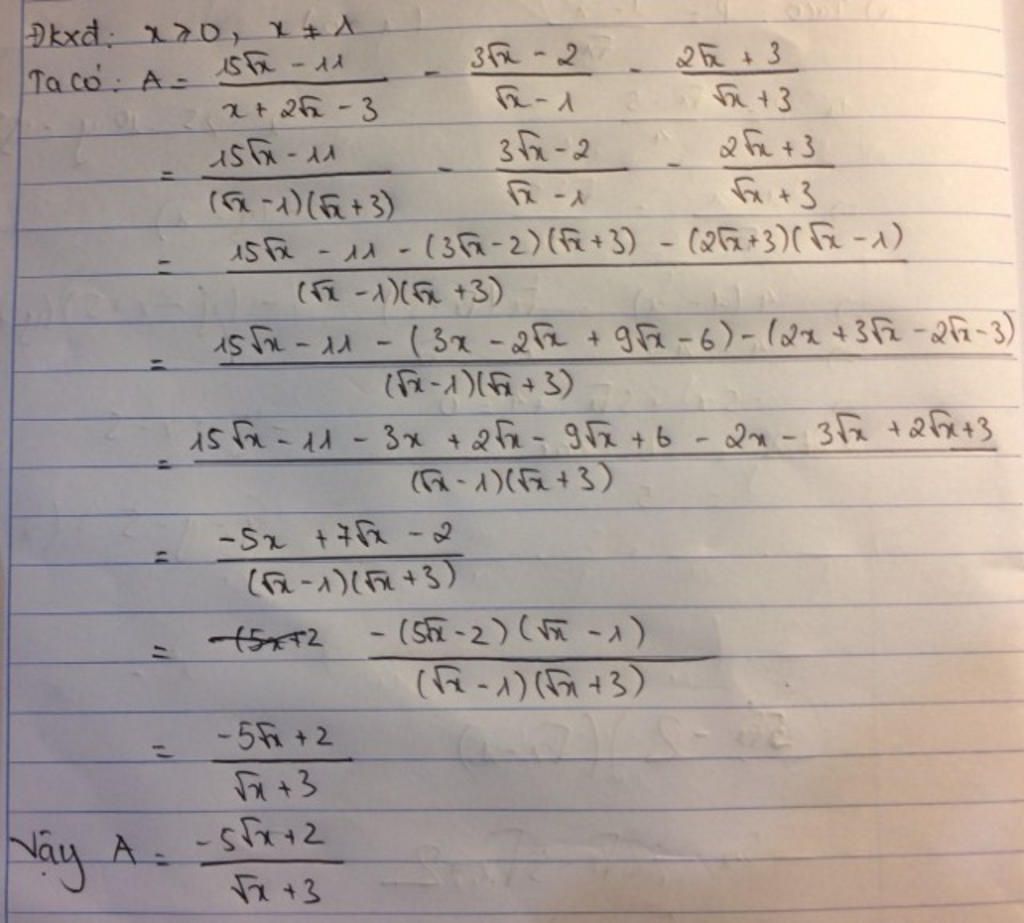 Đkxđ: x ≥ 0, x ≠ 1
Ta có: A = (15√x - 11)/(x + 2√x - 3) - (3√x - 2)/(√x - 1) - (2√x + 3)/(√x + 3)
= (15√x - 11)/((√x - 1)(√x + 3)) - (3√x - 2)/(√x - 1) - (2√x + 3)/(√x + 3)
= (15√x - 11 - (3√x - 2)(√x + 3) - (2√x + 3)(√x - 1))/((√x - 1)(√x + 3))
= (15√x - 11 - (3x - 2√x + 9√x - 6) - (2x + 3√x - 2√x - 3))/((√x - 1)(√x + 3))
= (15√x - 11 - 3x + 2√x - 9√x + 6 - 2x - 3√x + 2√x + 3)/((√x - 1)(√x + 3))
= (-5x + 7√x - 2)/((√x - 1)(√x + 3))
= -(5x+2 (-(5√x - 2)(√x - 1))/((√x - 1)(√x + 3))
= (-5√x + 2)/(√x + 3)
Vậy A = (-5√x + 2)/(√x + 3)